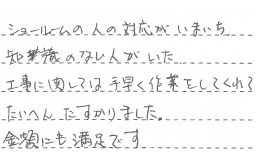 ショールームの人の対応がいまいち
知識のない人がいた
工事に関しては手早く作業をしてくれて
たいへんたすかりました。
金額にも満足です